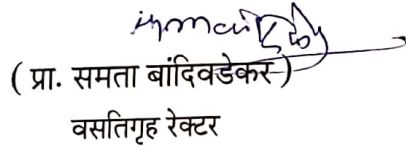 ( प्रा. समता बांदिवडेकर )
वसतिगृह रेक्टर